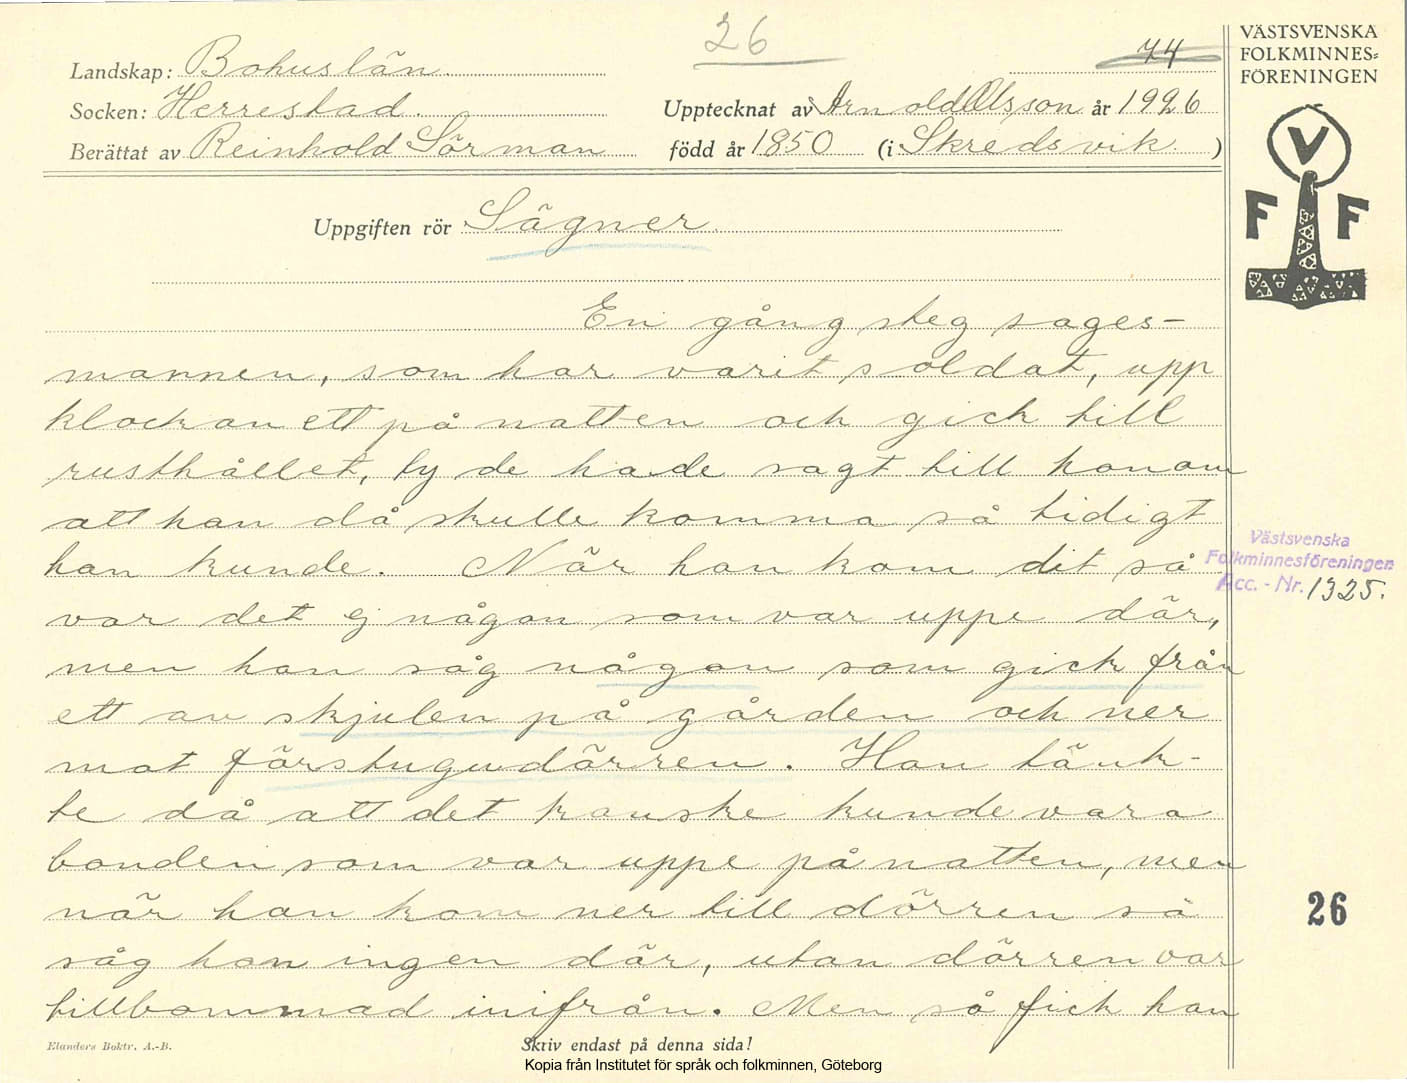 26
74
VÄSTSVENSKA
FOLKMINNES-
FÖRENINGEN
Landskap: Bohuslän
Socken: Herrestad. Upptecknat av Arnold Olsson år 1926
Berättat av Reinhold Sörman född år 1850 (i Skredsvik.)
V
F F
Uppgiften rör Sägner
En gång steg sages-
mannen, som har varit soldat, upp
klockan ett på natten och gick till
rusthållet, ty de hade sagt till honom
att han då skulle komma så tidigt
han kunde. När han kom dit så
var det ej någon som var uppe där,
men han såg någon som gick från
ett av skjulen på gården och ner
mot förstugudörren. Han tänk-
te då att det kanske kunde vara
bonden som var uppe på natten, men
när han kom ner till dörren så
såg han ingen där, utan dörren var
tillbommad inifrån. Men så fick han
Västsvenska
Folkminnesföreningen
Acc. - Nr. 1325.
26
Elanders Boktr. A.-B.
Skriv endast på denna sida!
Kopia från Institutet för språk och folkminnen, Göteborg